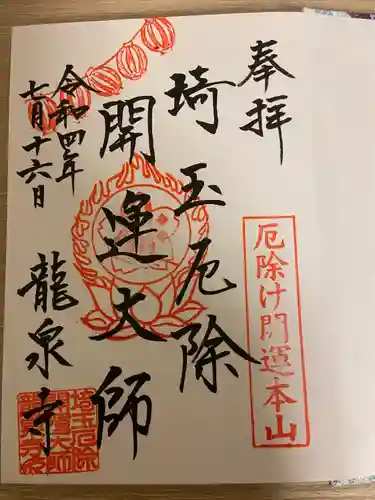 奉拝
厄除け開運本山
埼玉厄除
開運大師
令和四年
七月十六日
龍泉寺